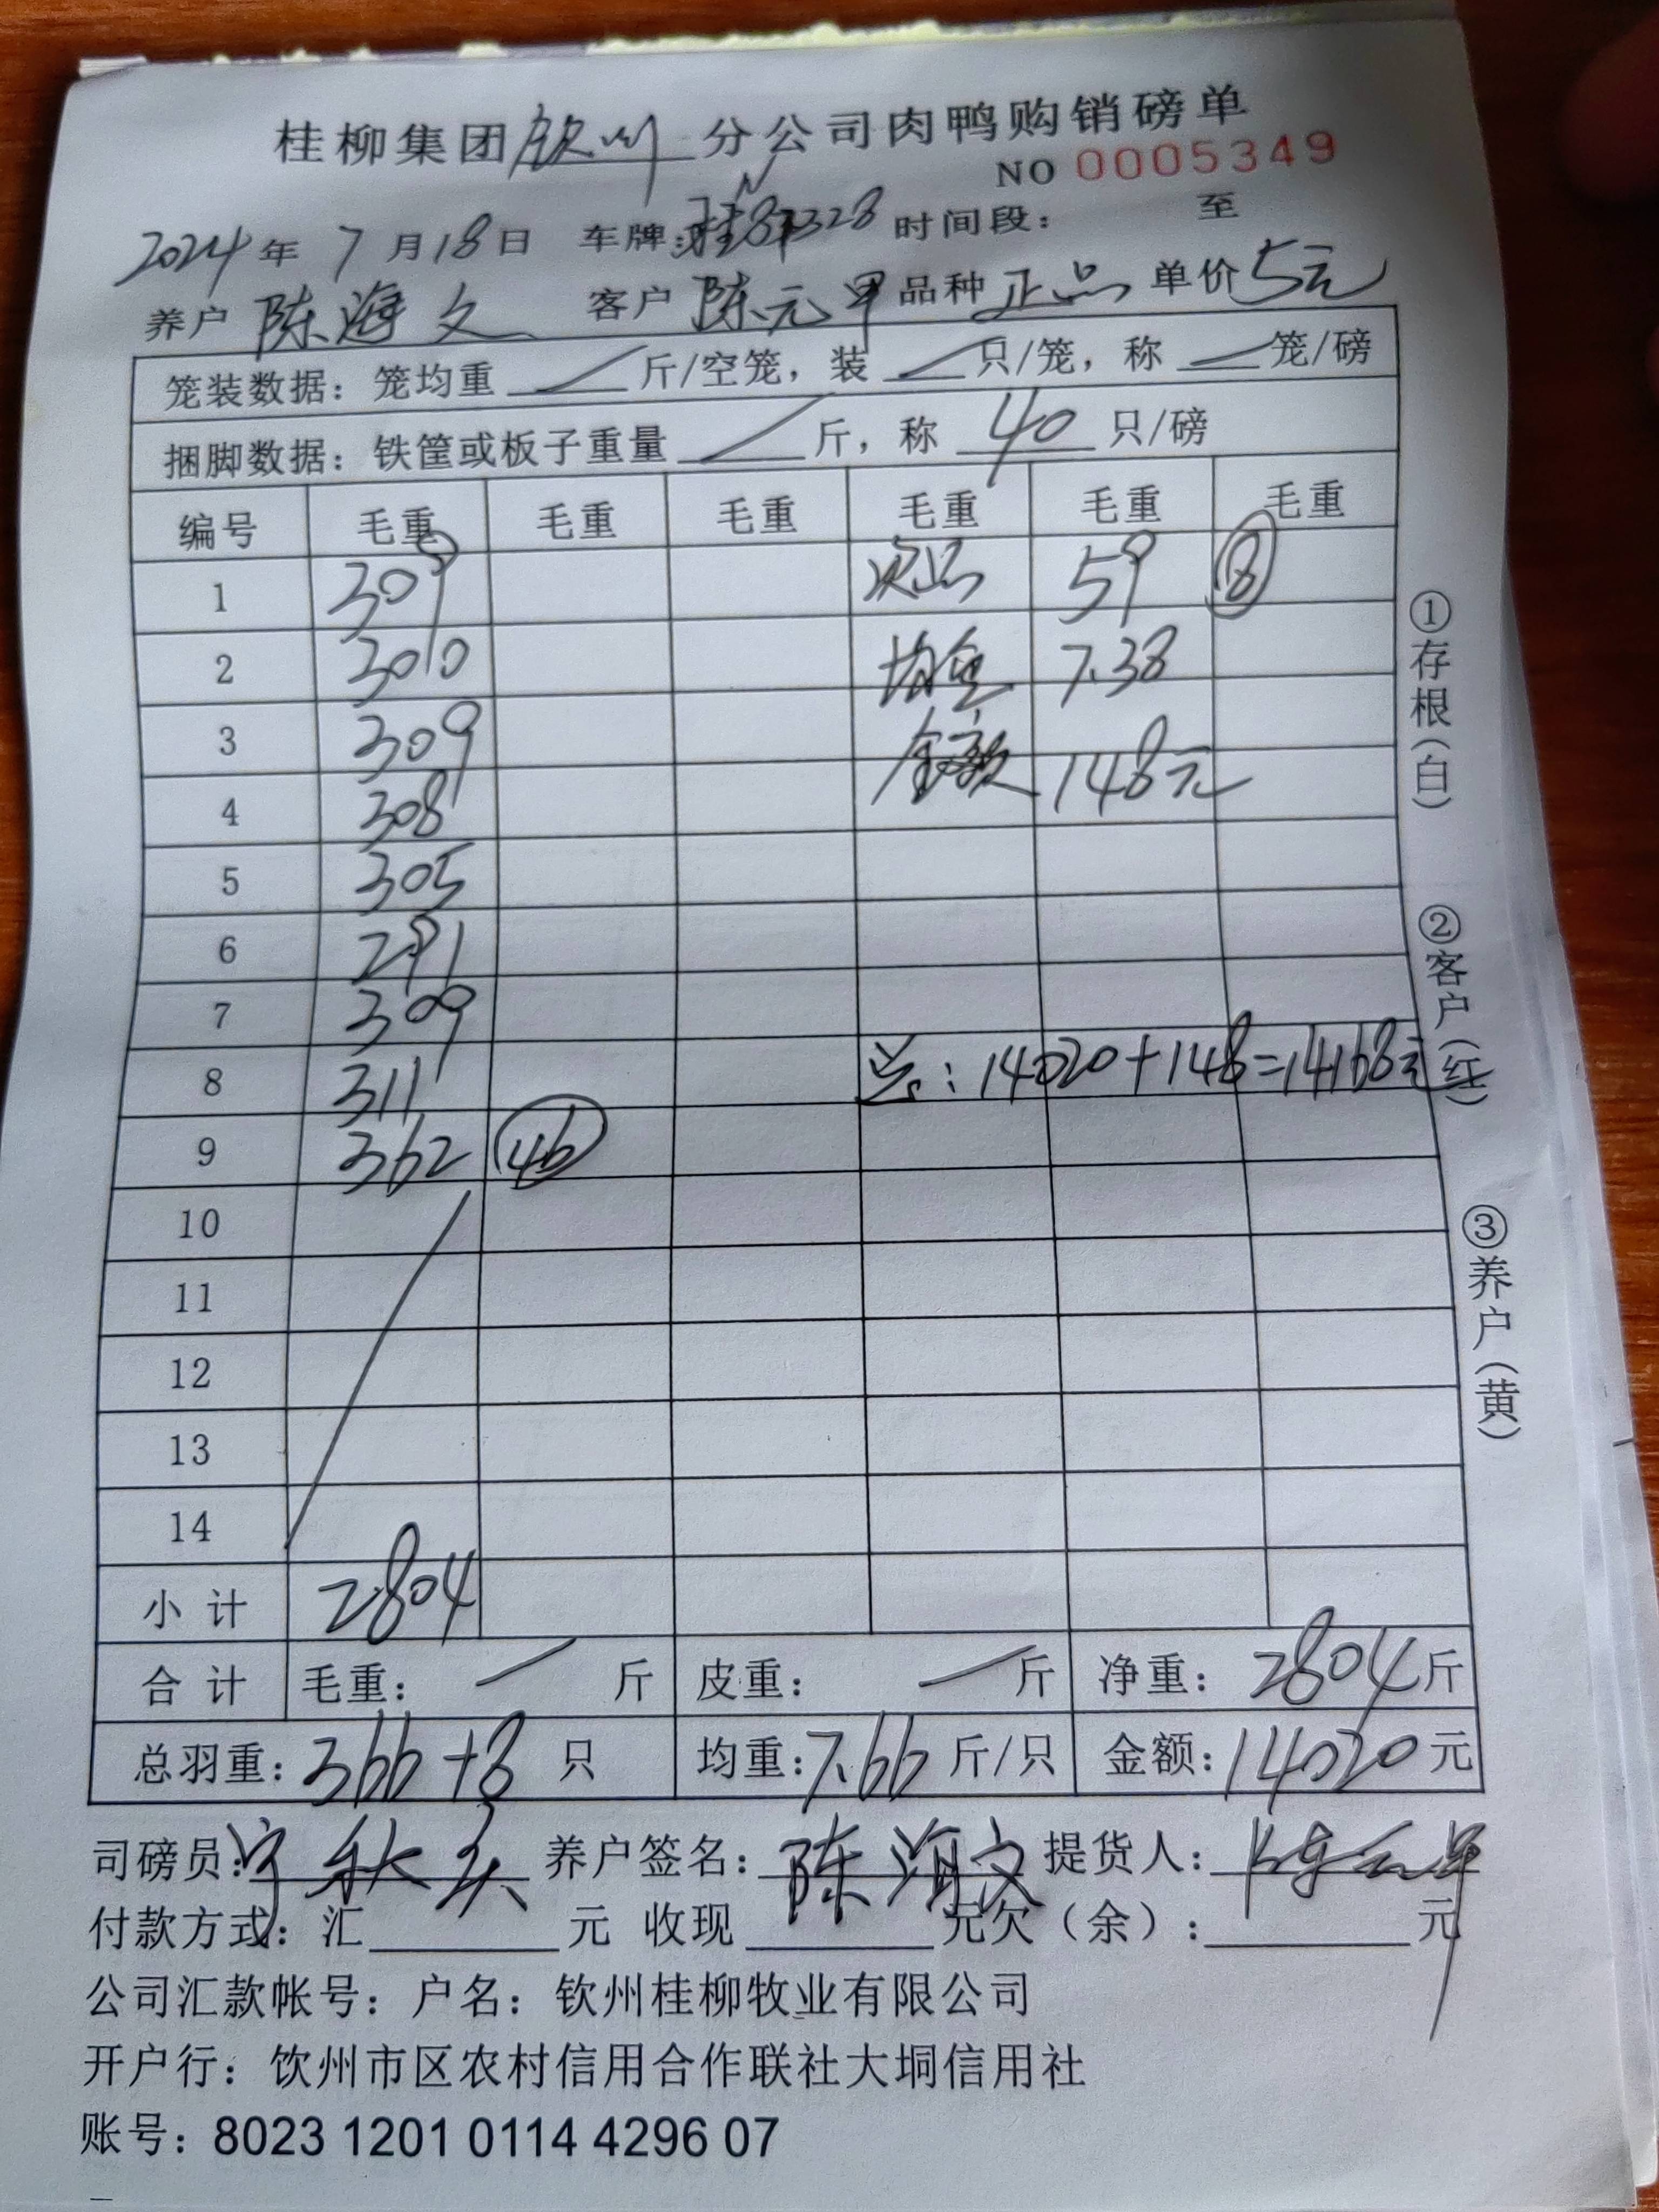 桂柳集团钦州分公司肉鸭购销磅单
NO 0005349
2024年7月18日 车牌: 时间段: 至
养户 陈海文 客户 陈元军 品种 正品 单价 5元
笼装数据：笼均重 / 斤/空笼，装 / 只/笼，称 / 笼/磅
捆脚数据：铁筐或板子重量 / 斤，称 40 只/磅
编号 毛重 毛重 毛重 毛重 毛重 毛重
1 309 次品 59 ⑧
2 300 均重 7.38
3 309 金额 148元
4 308
5 305
6 291
7 309
8 311 总：14020+148=14168元
9 362 46
10
11
12
13
14
小计 2804
合计 毛重： / 斤 皮重： / 斤 净重： 2804斤
总羽重：366+8 只 均重：7.66 斤/只 金额：14020元
司磅员： 养户签名：陈海文 提货人：陈元军
付款方式：汇 元 收现 元欠（余）： 元
公司汇款帐号：户名：钦州桂柳牧业有限公司
开户行：饮州市区农村信用合作联社大垌信用社
账号：8023 1201 0114 4296 07
①存根（白）
②客户（红）
③养户（黄）